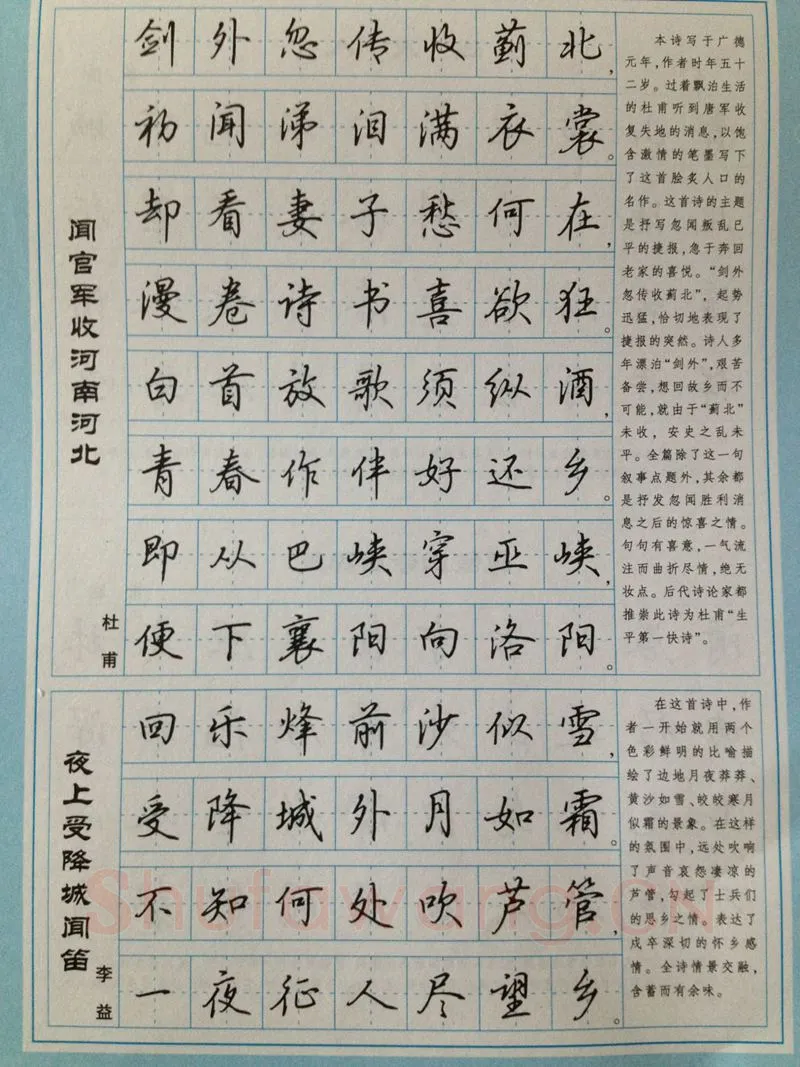 闻官军收河南河北
杜甫
剑外忽传收蓟北，
初闻涕泪满衣裳。
却看妻子愁何在，
漫卷诗书喜欲狂。
白首放歌须纵酒，
青春作伴好还乡。
即从巴峡穿巫峡，
便下襄阳向洛阳。
本诗写于广德
元年，作者时年五十
二岁。过着飘泊生活
的杜甫听到唐军收
复失地的消息，以饱
含激情的笔墨写下
了这首脍炙人口的
名作。这首诗的主题
是抒写忽闻叛乱已
平的捷报，急于奔回
老家的喜悦。“剑外
忽传收蓟北”，起势
迅猛，恰切地表现了
捷报的突然。诗人多
年漂泊“剑外”，艰苦
备尝，想回故乡而不
可能，就由于“蓟北”
未收，安史之乱未
平。全篇除了这一句
叙事点题外，其余都
是抒发忽闻胜利消
息之后的惊喜之情。
句句有喜意，一气流
注而曲折尽情，绝无
妆点。后代诗论家都
推崇此诗为杜甫“生
平第一快诗”。
夜上受降城闻笛
李益
回乐烽前沙似雪，
受降城外月如霜。
不知何处吹芦管，
一夜征人尽望乡。
在这首诗中，作
者一开始就用两个
色彩鲜明的比喻描
绘了边地月夜莽莽、
黄沙如雪、皎皎寒月
似霜的景象。在这样
的氛围中，远处吹响
了声音哀怨凄凉的
芦管，勾起了士兵们
的思乡之情。表达了
戍卒深切的怀乡感
情。全诗情景交融，
含蓄而有余味。
Shufawang.CN